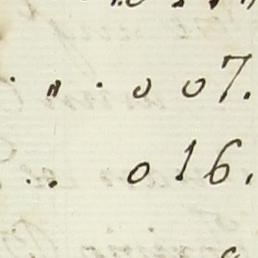 . " . 0 07.
. . 0 16.